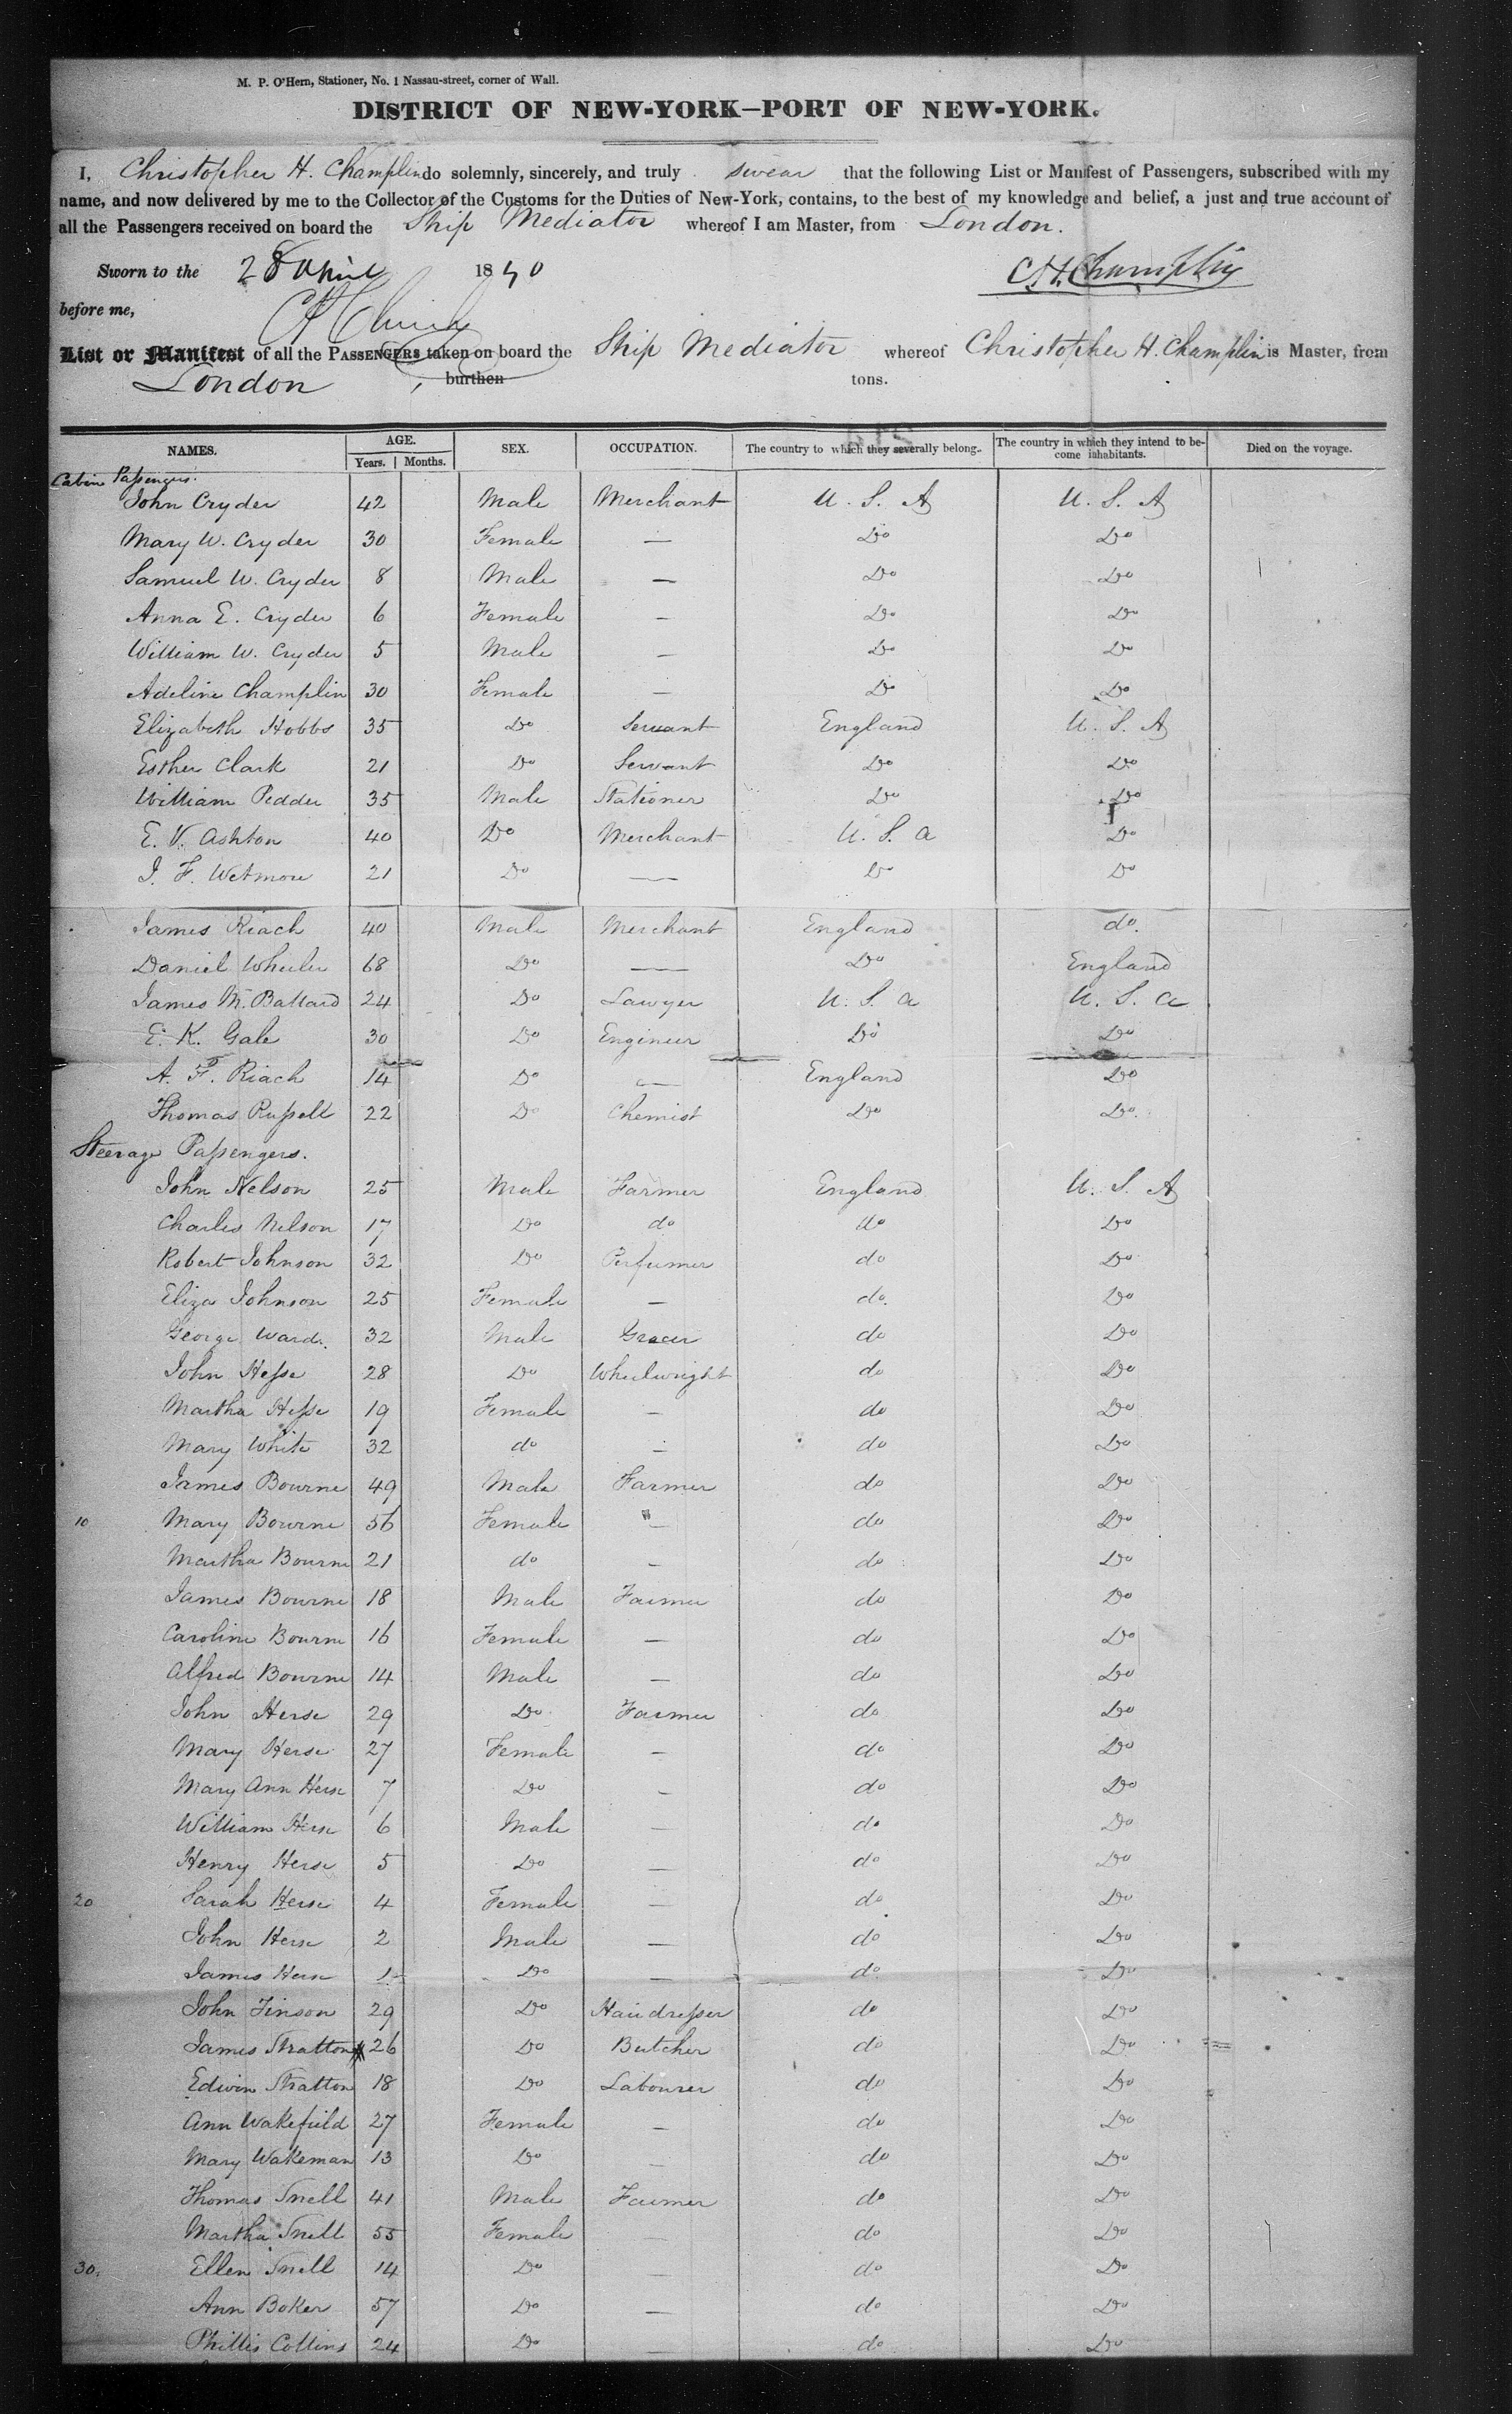 M. P. O'Hern, Stationer, No. 1 Nassau-street, corner of Wall.
DISTRICT OF NEW-YORK—PORT OF NEW-YORK.
I, Christopher H. Champlin do solemnly, sincerely, and truly swear that the following List or Manifest of Passengers, subscribed with my
name, and now delivered by me to the Collector of the Customs for the Duties of New-York, contains, to the best of my knowledge and belief, a just and true account of
all the Passengers received on board the Ship Mediator whereof I am Master, from London.
Sworn to the 28 April 1840 C. H. Champlin
before me,
List or Manifest of all the PASSENGERS taken on board the Ship Mediator whereof Christopher H. Champlin is Master, from
London burthen tons.
NAMES. AGE. Years. Months. SEX. OCCUPATION. The country to which they severally belong. The country in which they intend to become inhabitants. Died on the voyage.
Cabin Passengers.
John Cryder 42 Male Merchant U. S. A U. S. A
Mary W. Cryder 30 Female — Do Do
Samuel W. Cryder 8 Male — Do Do
Anna E. Cryder 6 Female — Do Do
William W. Cryder 5 Male — Do Do
Adeline Champlin 30 Female — Do Do
Elizabeth Hobbs 35 Do Servant England U. S. A
Esther Clark 21 Do Servant Do Do
William Pedder 35 Male Stationer Do Do
E. V. Ashton 40 Do Merchant U. S. a Do
J. F. Wetmore 21 Do — Do Do
James Riach 40 Male Merchant England do.
Daniel Wheeler 68 Do — Do England
James M. Ballard 24 Do Lawyer U. S. a U. S. a
E. K. Gale 30 Do Engineer Do Do
A. F. Riach 14 Do — England Do
Thomas Russell 22 Do Chemist Do Do.
Steerage Passengers.
John Nelson 25 Male Farmer England U. S. A
Charles Nelson 17 Do do do Do
Robert Johnson 32 Do Perfumer do Do
Eliza Johnson 25 Female — do. Do
George Ward. 32 Male Grocer do Do
John Hesse 28 Do Wheelwright do Do
Martha Hesse 19 Female — do Do
Mary White 32 do — do Do
James Bourne 49 Male Farmer do Do
10 Mary Bourne 56 Female — do Do
Martha Bourne 21 do — do Do
James Bourne 18 Male Farmer do Do
Caroline Bourne 16 Female — do Do
Alfred Bourne 14 Male — do Do
John Herse 29 Do Farmer do Do
Mary Herse 27 Female — do Do
Mary Ann Herse 7 Do — do Do
William Herse 6 Male — do Do
Henry Herse 5 Do — do Do
20 Sarah Herse 4 Female — do Do
John Herse 2 Male — do Do
James Herse 1 Do — do Do
John Finson 29 Do Hairdresser do Do
James Stratton 26 Do Butcher do Do
Edwin Stratton 18 Do Labourer do Do
Ann Wakefield 27 Female — do Do
Mary Wakeman 13 Do — do Do
Thomas Snell 41 Male Farmer do Do
Martha Snell 55 Female — do Do
30. Ellen Snell 14 Do — do Do
Ann Boker 57 Do — do Do
Phillis Collins 24 Do — do Do